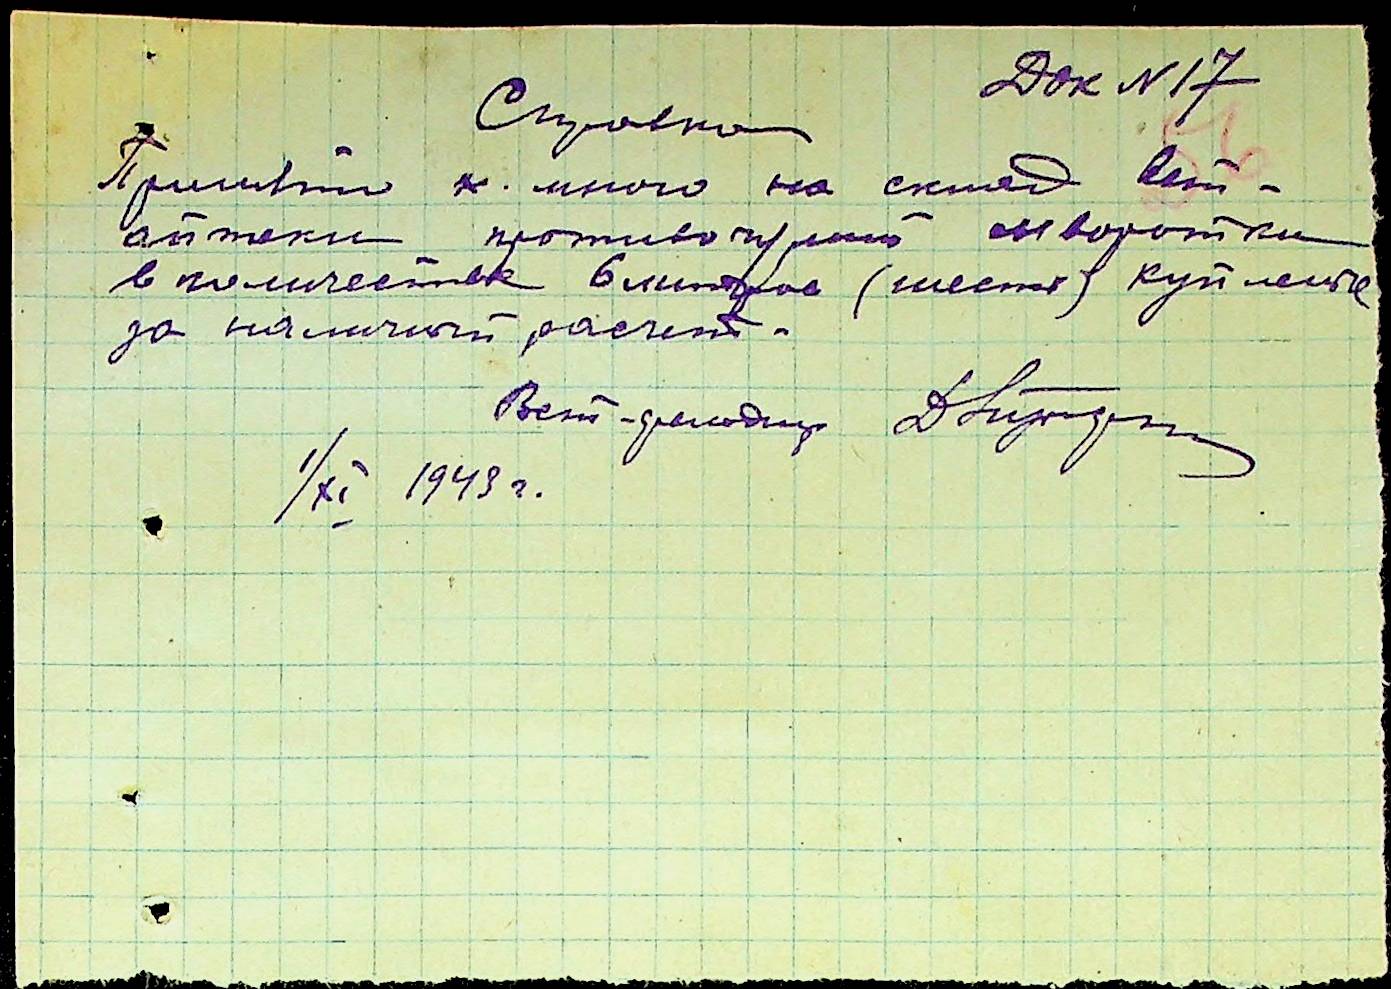 Док N 17
56
Справка
Принято мною на склад Вет-
аптеки противочумной сыворотки
в количестве 6 литров (шесть) куплены
за наличный расчет.
Вет-фельдшер
1/XI 1943 г.